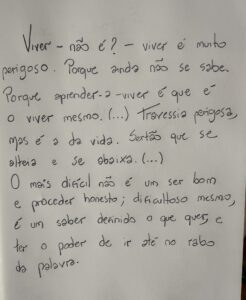 Viver - não é? - viver é muito
perigoso. Porque ainda não se sabe.
Porque aprender-a-viver é que é
o viver mesmo. (...) Travessia perigosa,
mas é a da vida. Sertão que se
alteia e se abaixa. (...)
O mais difícil não é um ser bom
e proceder honesto; dificultoso mesmo,
é um saber definido o que quer, e
ter o poder de ir até no rabo
da palavra.